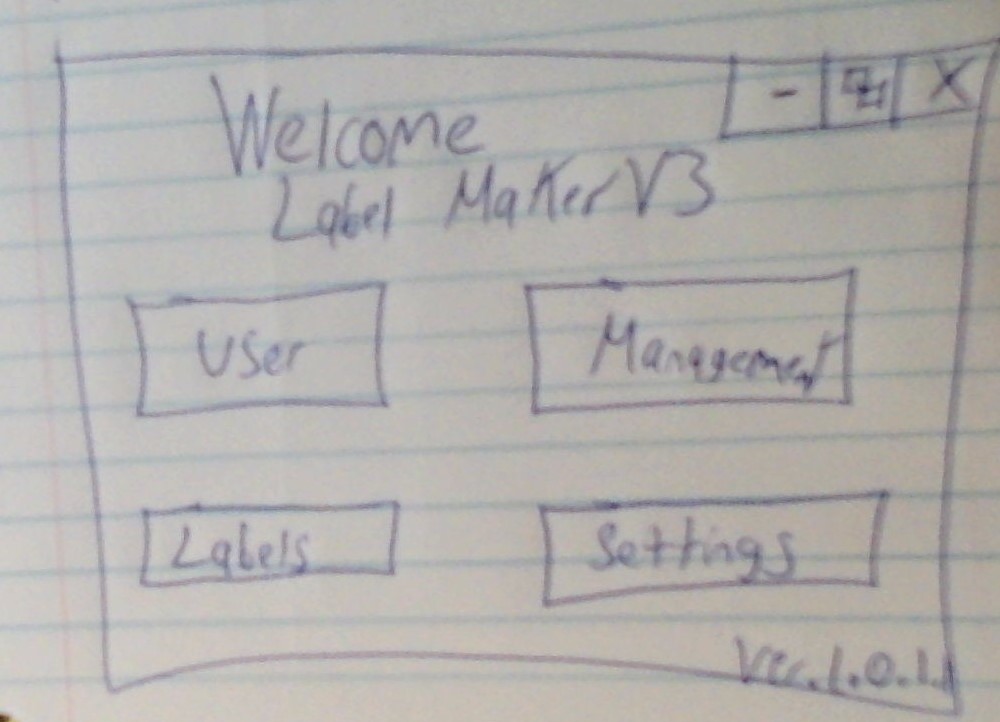 Welcome
Label Maker V3
User
Management
Labels
Settings
Ver.1.0.1.1